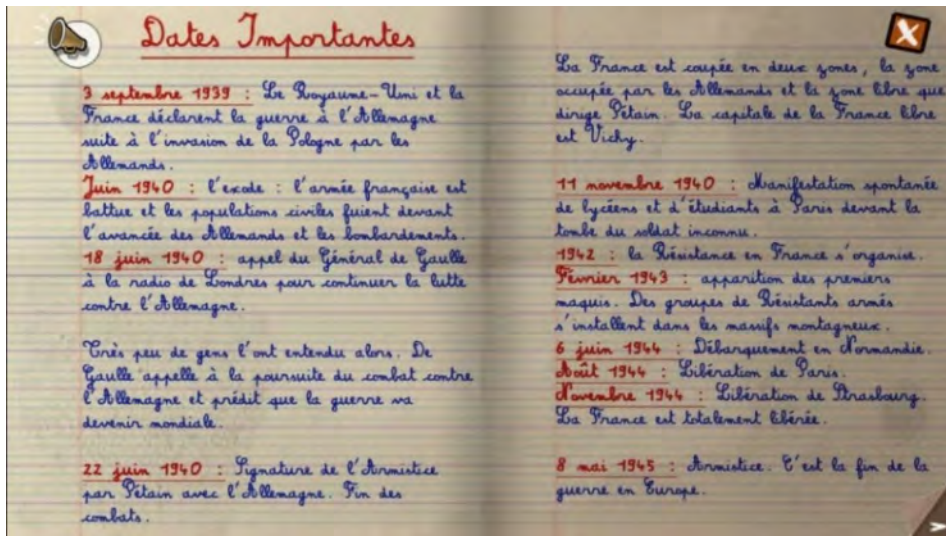 Dates Importantes
3 septembre 1939 : Le Royaume-Uni et la
France déclarent la guerre à l'Allemagne
suite à l'invasion de la Pologne par les
Allemands.
Juin 1940 : l'exode : l'armée française est
battue et les populations civiles fuient devant
l'avancée des Allemands et les bombardements.
18 juin 1940 : appel du Général de Gaulle
à la radio de Londres pour continuer la lutte
contre l'Allemagne.
Très peu de gens l'ont entendu alors. De
Gaulle appelle à la poursuite du combat contre
l'Allemagne et prédit que la guerre va
devenir mondiale.
22 juin 1940 : Signature de l'Armistice
par Pétain avec l'Allemagne. Fin des
combats.
La France est coupée en deux zones, la zone
occupée par les Allemands et la zone libre que
dirige Pétain. La capitale de la France libre
est Vichy.
11 novembre 1940 : Manifestation spontanée
de lycéens et d'étudiants à Paris devant la
tombe du soldat inconnu.
1942 : la Résistance en France s'organise.
Février 1943 : apparition des premiers
maquis. Des groupes de Résistants armés
s'installent dans les massifs montagneux.
6 juin 1944 : Débarquement en Normandie.
Août 1944 : Libération de Paris.
Novembre 1944 : Libération de Strasbourg.
La France est totalement libérée.
8 mai 1945 : Armistice. C'est la fin de la
guerre en Europe.